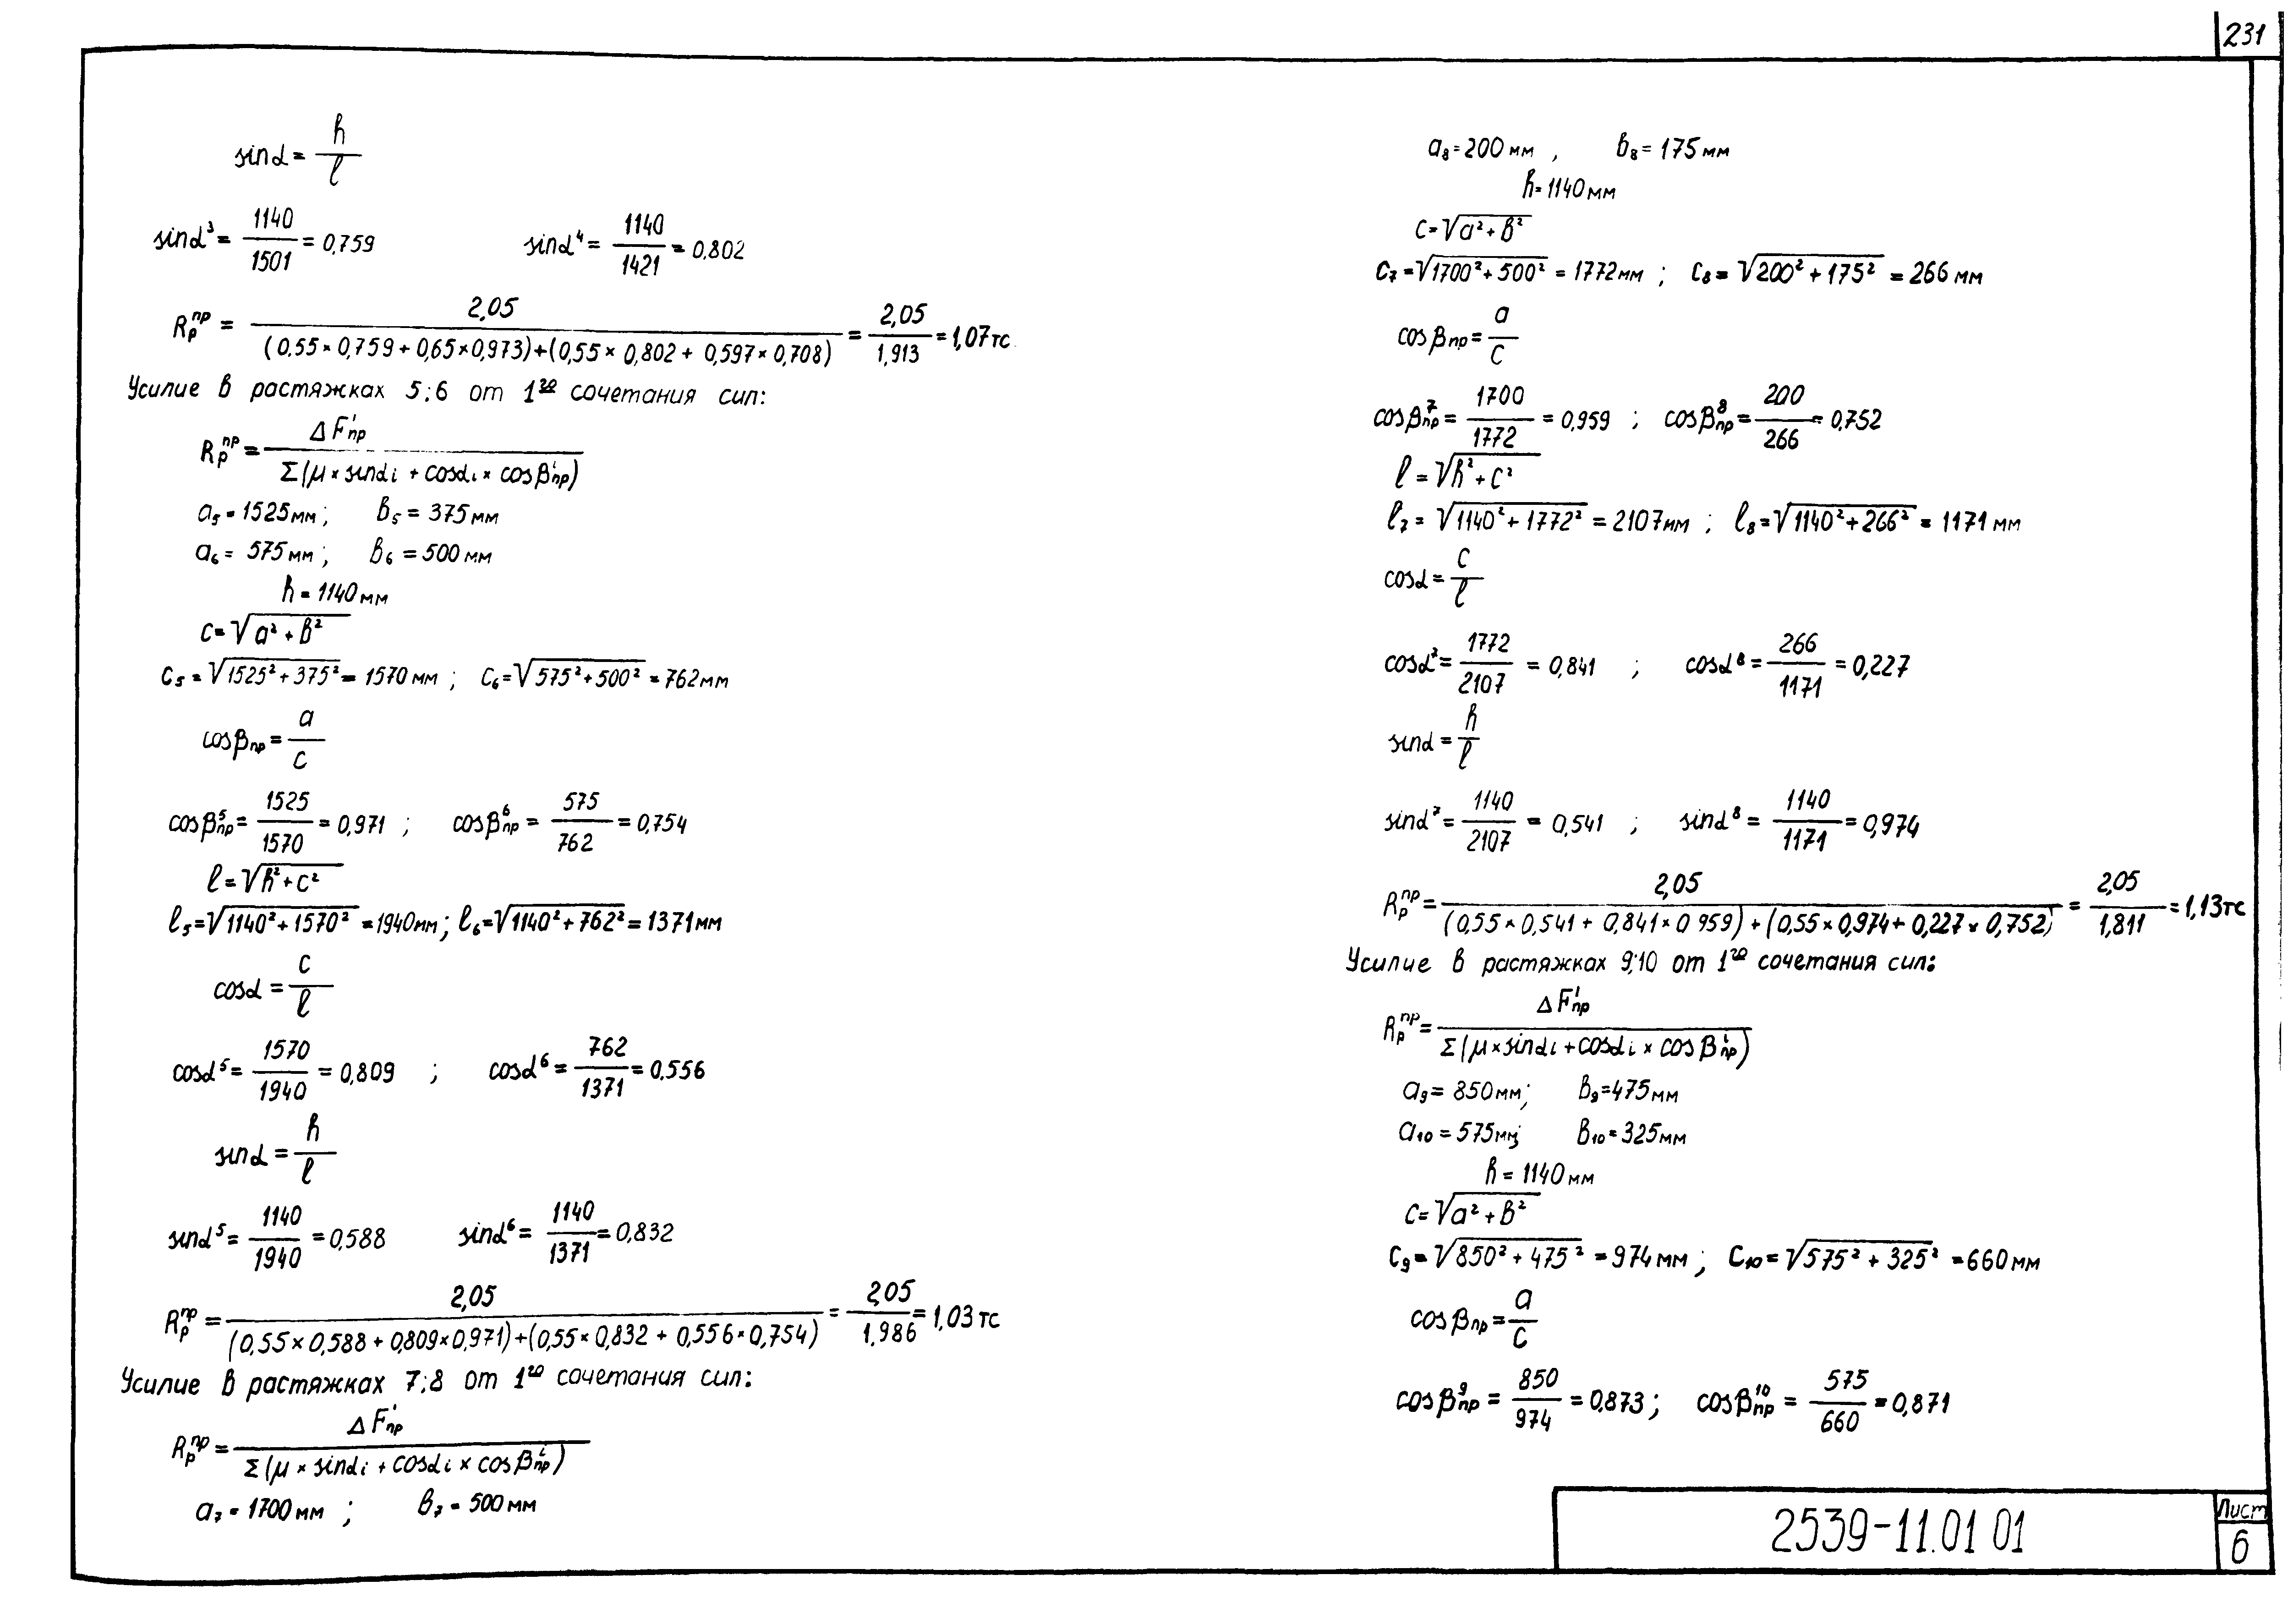 231
sinα = h/l
sinα³ = 1140/1501 = 0,759 sinα⁴ = 1140/1421 = 0,802
Rр^пр = 2,05/((0,55×0,759+0,65×0,973)+(0,55×0,802+0,597×0,708)) = 2,05/1,913 = 1,07тс
Усилие в растяжках 5;6 от 1го сочетания сил:
Rр^пр = ΔF'пр/Σ(μ×sinαi+cosαi×cosβ^iпр)
a₅=1525мм; в₅=375мм
a₆=575мм; в₆=500мм
h=1140мм
c=√(a²+в²)
c₅=√(1525²+375²)=1570мм; c₆=√(575²+500²)=762мм
cosβпр = a/c
cosβ⁵пр = 1525/1570 = 0,971; cosβ⁶пр = 575/762 = 0,754
l=√(h²+c²)
l₅=√(1140²+1570²)=1940мм; l₆=√(1140²+762²)=1371мм
cosα = c/l
cosα⁵ = 1570/1940 = 0,809; cosα⁶ = 762/1371 = 0,556
sinα = h/l
sinα⁵ = 1140/1940 = 0,588 sinα⁶ = 1140/1371 = 0,832
Rр^пр = 2,05/((0,55×0,588+0,809×0,971)+(0,55×0,832+0,556×0,754)) = 2,05/1,986 = 1,03тс
Усилие в растяжках 7;8 от 1го сочетания сил:
Rр^пр = ΔF'пр/Σ(μ×sinαi+cosαi×cosβ^iпр)
a₇=1700мм; в₇=500мм
a₈=200мм, в₈=175мм
h=1140мм
c=√(a²+в²)
c₇=√(1700²+500²)=1772мм; c₈=√(200²+175²)=266мм
cosβпр = a/c
cosβ⁷пр = 1700/1772 = 0,959; cosβ⁸пр = 200/266 = 0,752
l=√(h²+c²)
l₇=√(1140²+1772²)=2107мм; l₈=√(1140²+266²)=1171мм
cosα = c/l
cosα⁷ = 1772/2107 = 0,841; cosα⁸ = 266/1171 = 0,227
sinα = h/l
sinα⁷ = 1140/2107 = 0,541; sinα⁸ = 1140/1171 = 0,974
Rр^пр = 2,05/((0,55×0,541+0,841×0,959)+(0,55×0,974+0,227×0,752)) = 2,05/1,811 = 1,13тс
Усилие в растяжках 9;10 от 1го сочетания сил:
Rр^пр = ΔF'пр/Σ(μ×sinαi+cosαi×cosβ^iпр)
a₉=850мм; в₉=475мм
a₁₀=575мм; в₁₀=325мм
h=1140мм
c=√(a²+в²)
c₉=√(850²+475²)=974мм; c₁₀=√(575²+325²)=660мм
cosβпр = a/c
cosβ⁹пр = 850/974 = 0,873; cosβ¹⁰пр = 575/660 = 0,871
2539-11.01 01
Лист
6